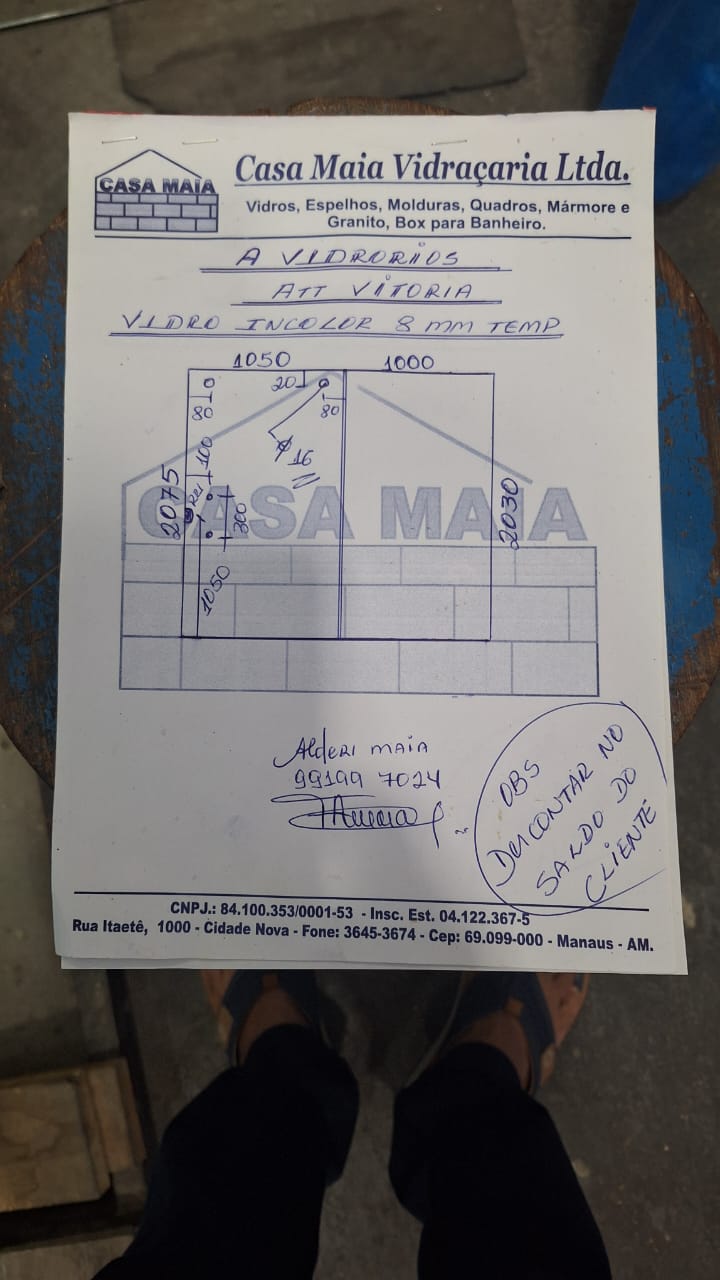 CASA MAIA
Casa Maia Vidraçaria Ltda.
Vidros, Espelhos, Molduras, Quadros, Mármore e
Granito, Box para Banheiro.
A VIDRORIOS
ATT VITORIA
VIDRO INCOLOR 8 MM TEMP
1050
1000
20
80
80
100
φ 16
2075
300
2030
1050
CASA MAIA
Alderi MAIA
99199 7024
OBS
DESCONTAR NO
SALDO DO
CLIENTE
CNPJ.: 84.100.353/0001-53 - Insc. Est. 04.122.367-5
Rua Itaetê, 1000 - Cidade Nova - Fone: 3645-3674 - Cep: 69.099-000 - Manaus - AM.